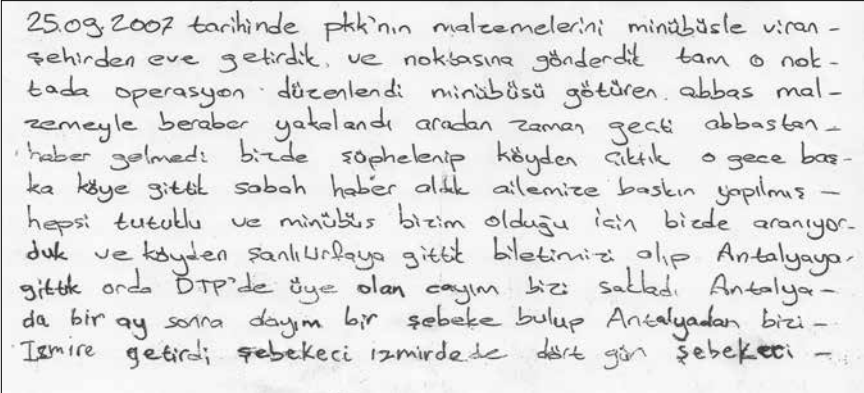 25.09.2007 tarihinde pkk'nın malzemelerini minübüsle viran-
şehirden eve getirdik. ve noktasına gönderdik tam o nok-
tada operasyon düzenlendi minübüsü götüren. abbas mal-
zemeyle beraber yakalandı aradan zaman geçti abbastan-
haber gelmedi bizde şüphelenip köyden çıktık o gece baş-
ka köye gittik sabah haber aldık ailemize baskın yapılmış -
hepsi tutuklu ve minübüs bizim olduğu için bizde aranıyor-
duk ve köyden şanlıUrfaya gittik biletimizi alıp Antalyaya-
gittik orda DTP'de üye olan dayım bizi sakladı Antalya-
da bir ay sonra dayım bir şebeke bulup Antalyadan bizi-
Izmire getirdi şebekeci izmirdede dört gün şebekeci -